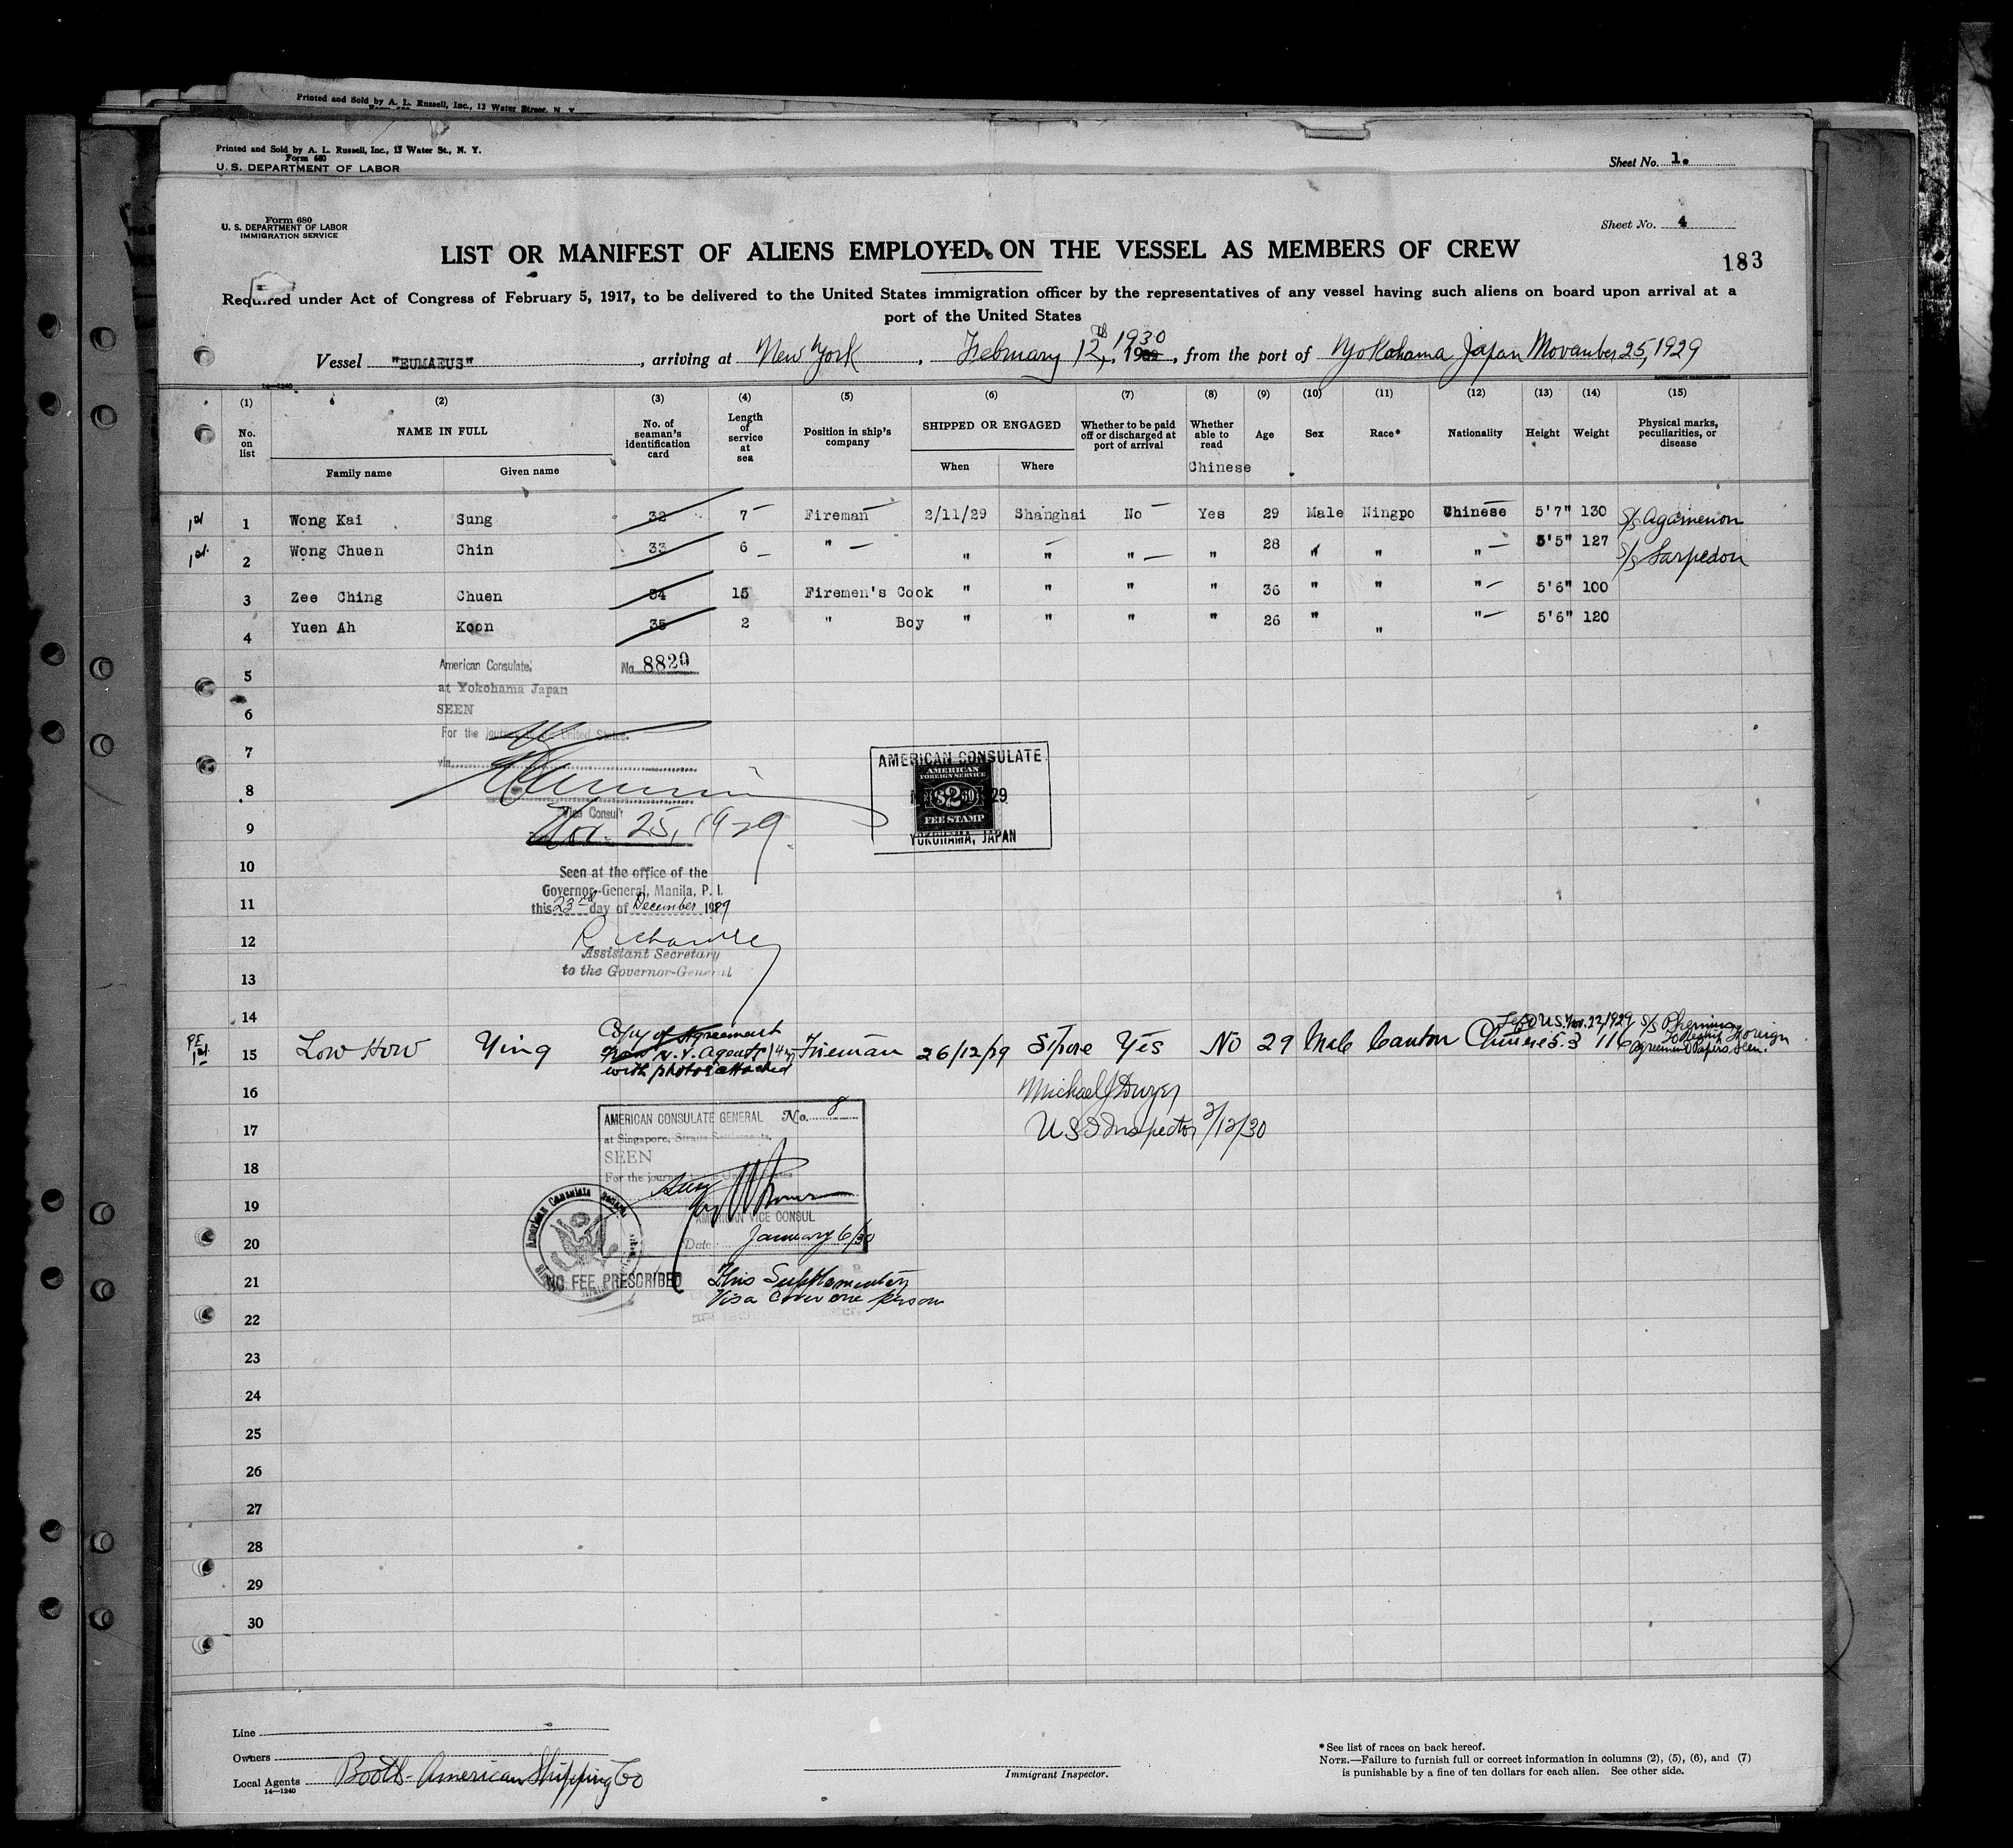 Printed and Sold by A. L. Russell, Inc., 13 Water Street, N. Y.
Printed and Sold by A. L. Russell, Inc., 13 Water St., N. Y.
Form 680
U. S. DEPARTMENT OF LABOR
Sheet No. 1.
Form 680
U. S. DEPARTMENT OF LABOR
IMMIGRATION SERVICE
Sheet No. 4
LIST OR MANIFEST OF ALIENS EMPLOYED ON THE VESSEL AS MEMBERS OF CREW
183
Required under Act of Congress of February 5, 1917, to be delivered to the United States immigration officer by the representatives of any vessel having such aliens on board upon arrival at a
port of the United States
Vessel "EUMAEUS", arriving at New York, February 12th, 1930, from the port of Yokohama Japan Novamber 25, 1929
14—1240
(1) (2) (3) (4) (5) (6) (7) (8) (9) (10) (11) (12) (13) (14) (15)
No. on list
NAME IN FULL
Family name
Given name
No. of seaman's identification card
Length of service at sea
Position in ship's company
SHIPPED OR ENGAGED
When
Where
Whether to be paid off or discharged at port of arrival
Whether able to read
Chinese
Age
Sex
Race*
Nationality
Height
Weight
Physical marks, peculiarities, or disease
1st 1 Wong Kai Sung 32 7 Fireman 2/11/29 Shanghai No Yes 29 Male Ningpo Chinese 5'7" 130 S/S Agamenon
1st 2 Wong Chuen Chin 33 6 " " " " " 28 " " " 5'5" 127 S/S Sarpedon
3 Zee Ching Chuen 34 15 Firemen's Cook " " " " 36 " " " 5'6" 100
4 Yuen Ah Koon 35 2 " Boy " " " " 26 " " " 5'6" 120
5
American Consulate
No 8820
at Yokohama Japan
6
SEEN
For the journey to the United States.
7
via
8
Vice Consul
9
Nov. 25, 1929
AMERICAN CONSULATE
AMERICAN FOREIGN SERVICE
$2
FEE STAMP
29
YOKOHAMA, JAPAN
10
Seen at the office of the
Governor-General, Manila, P. I.
11
this 23rd day of December 1929
12
Assistant Secretary
to the Governor-General
13
14
Left U.S. Nov. 12/1929 S/S
P.F. 1st 15 Low How Ying Copy of Agreement from N.Y. Agents with photo attached Fireman 26/12/29 S'pore Yes No 29 Male Canton Chinese 5.3 116 Foreign Agreement Papers seen.
16
Michael J Dwyer
17
U S I Inspector 2/12/30
AMERICAN CONSULATE GENERAL No. 8
at Singapore, Straits Settlements.
SEEN
18
For the journey to the United States
19
AMERICAN VICE CONSUL
20
Date January 6/30
American Consulate General
21
NO FEE PRESCRIBED
This Supplementary
Visa cover one person
22
23
24
25
26
27
28
29
30
Line
Owners
Local Agents Booth-American Shipping Co
14—1240
Immigrant Inspector.
*See list of races on back hereof.
NOTE.—Failure to furnish full or correct information in columns (2), (5), (6), and (7)
is punishable by a fine of ten dollars for each alien. See other side.